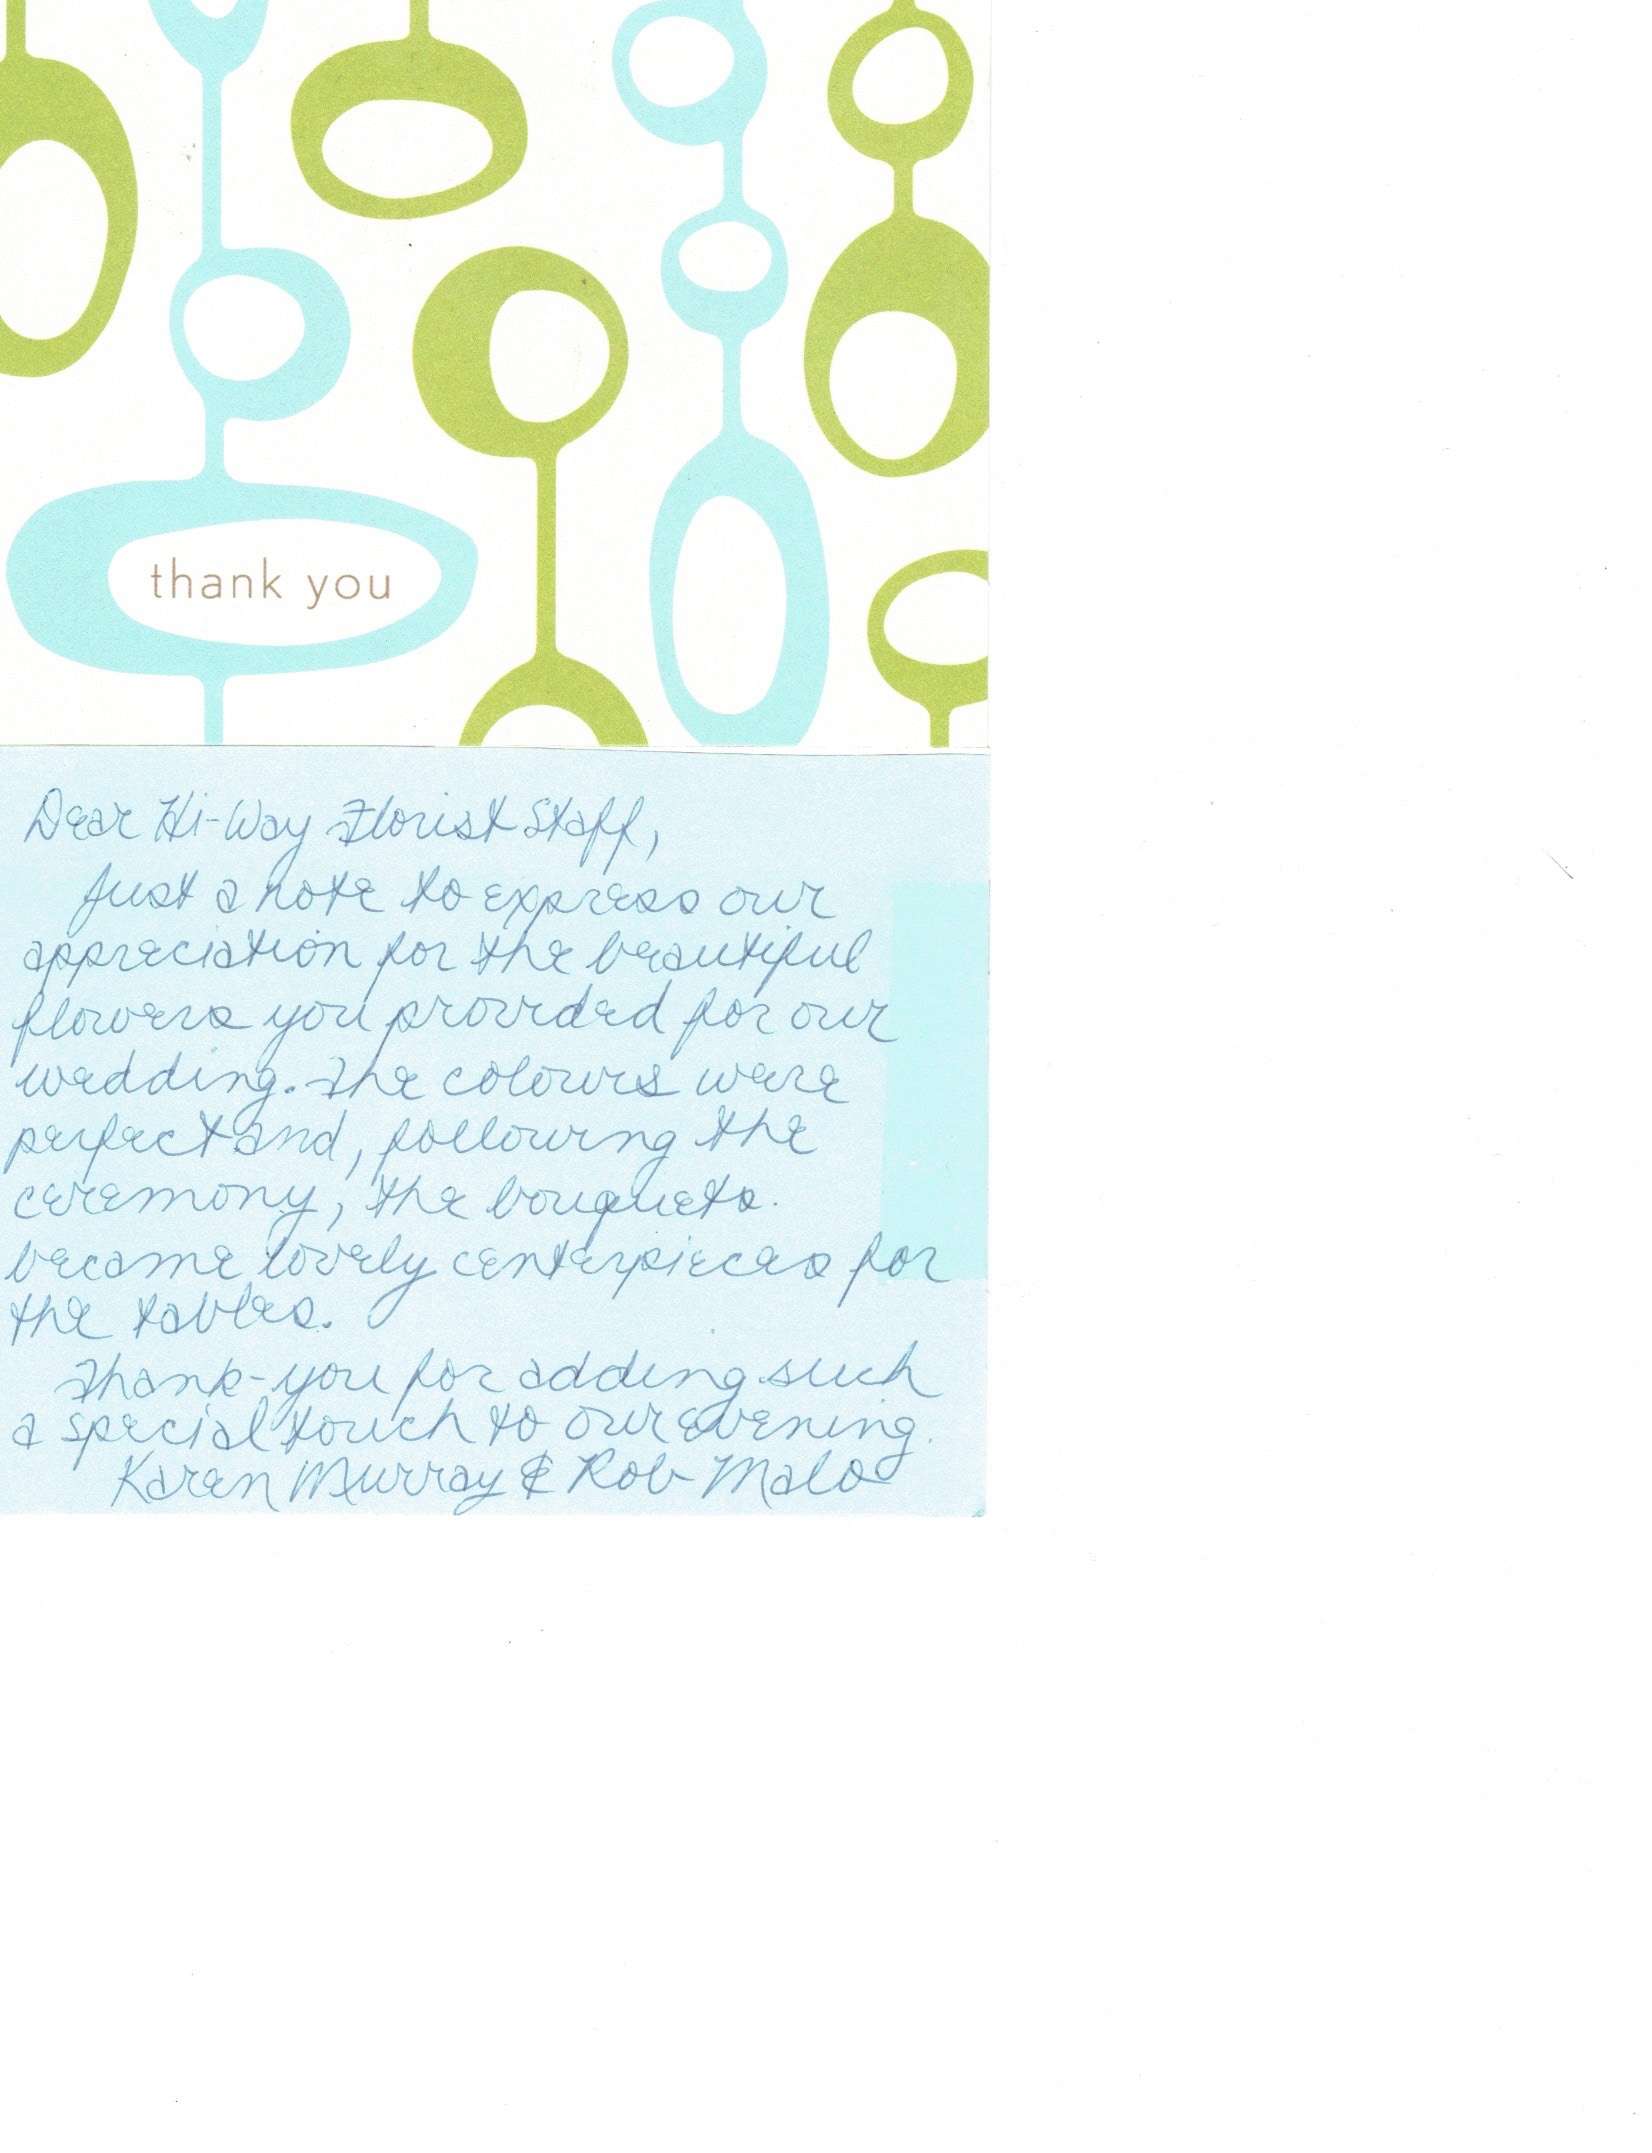 thank you
Dear Hi-Way Florist Staff,
Just a note to express our
appreciation for the beautiful
flowers you provided for our
wedding. The colours were
perfect and, following the
ceremony, the bouquets
became lovely centerpieces for
the tables.
Thank-you for adding such
a special touch to our evening.
Karen Murray & Rob Malo